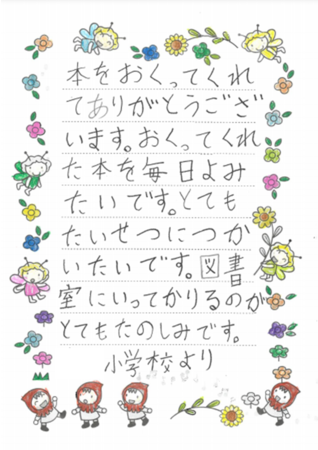 本をおくってくれ
てありがとうござ
います。おくってくれ
た本を毎日よみ
たいです。とても
たいせつにつか
いたいです。図書
室にいってかりるのが
とてもたのしみです。
小学校より